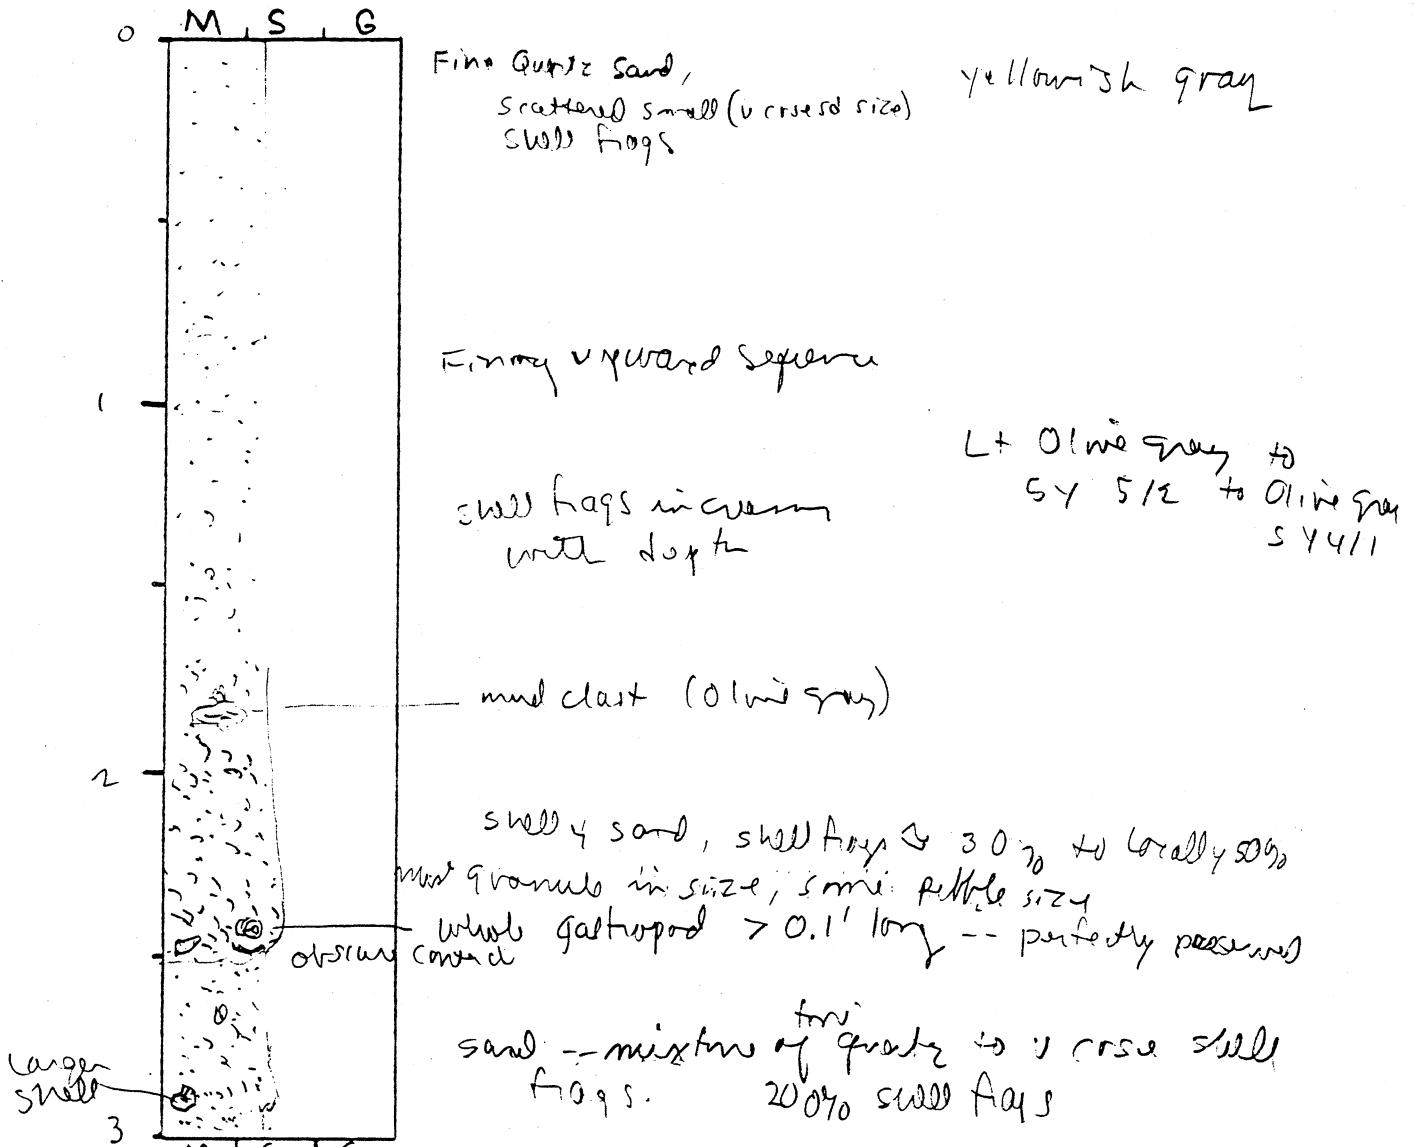 M S G
0
Fine Quartz sand, yellowish gray
scattered small (v crse sd size)
shell frags
Fining upward sequence
1
Lt Olive gray to
5Y 5/2 to Olive gray
5Y4/1
shell frags increasing
with depth
mud clast (Olive gray)
2
shelly sand, shell frags 30% to locally 50%
most granule in size, some pebble size
whole gastropod > 0.1' long -- perfectly preserved
obscure contact
sand -- mixture of fine quartz to v crse shell
frags. 20% shell frags
Larger
shell
3